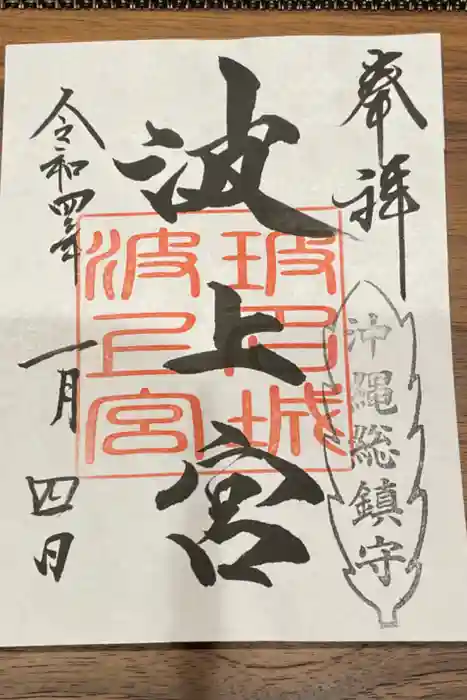 奉拝
沖縄総鎮守
波上宮
玻名城
波上宮
令和四年
一月
四日